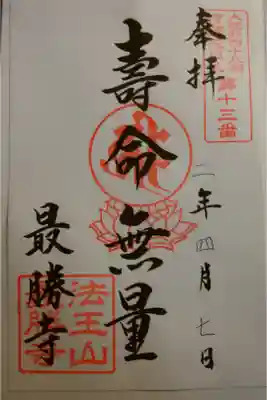 奉拝
第十三番
二年四月七日
壽命無量
最勝寺
法王山
最勝寺